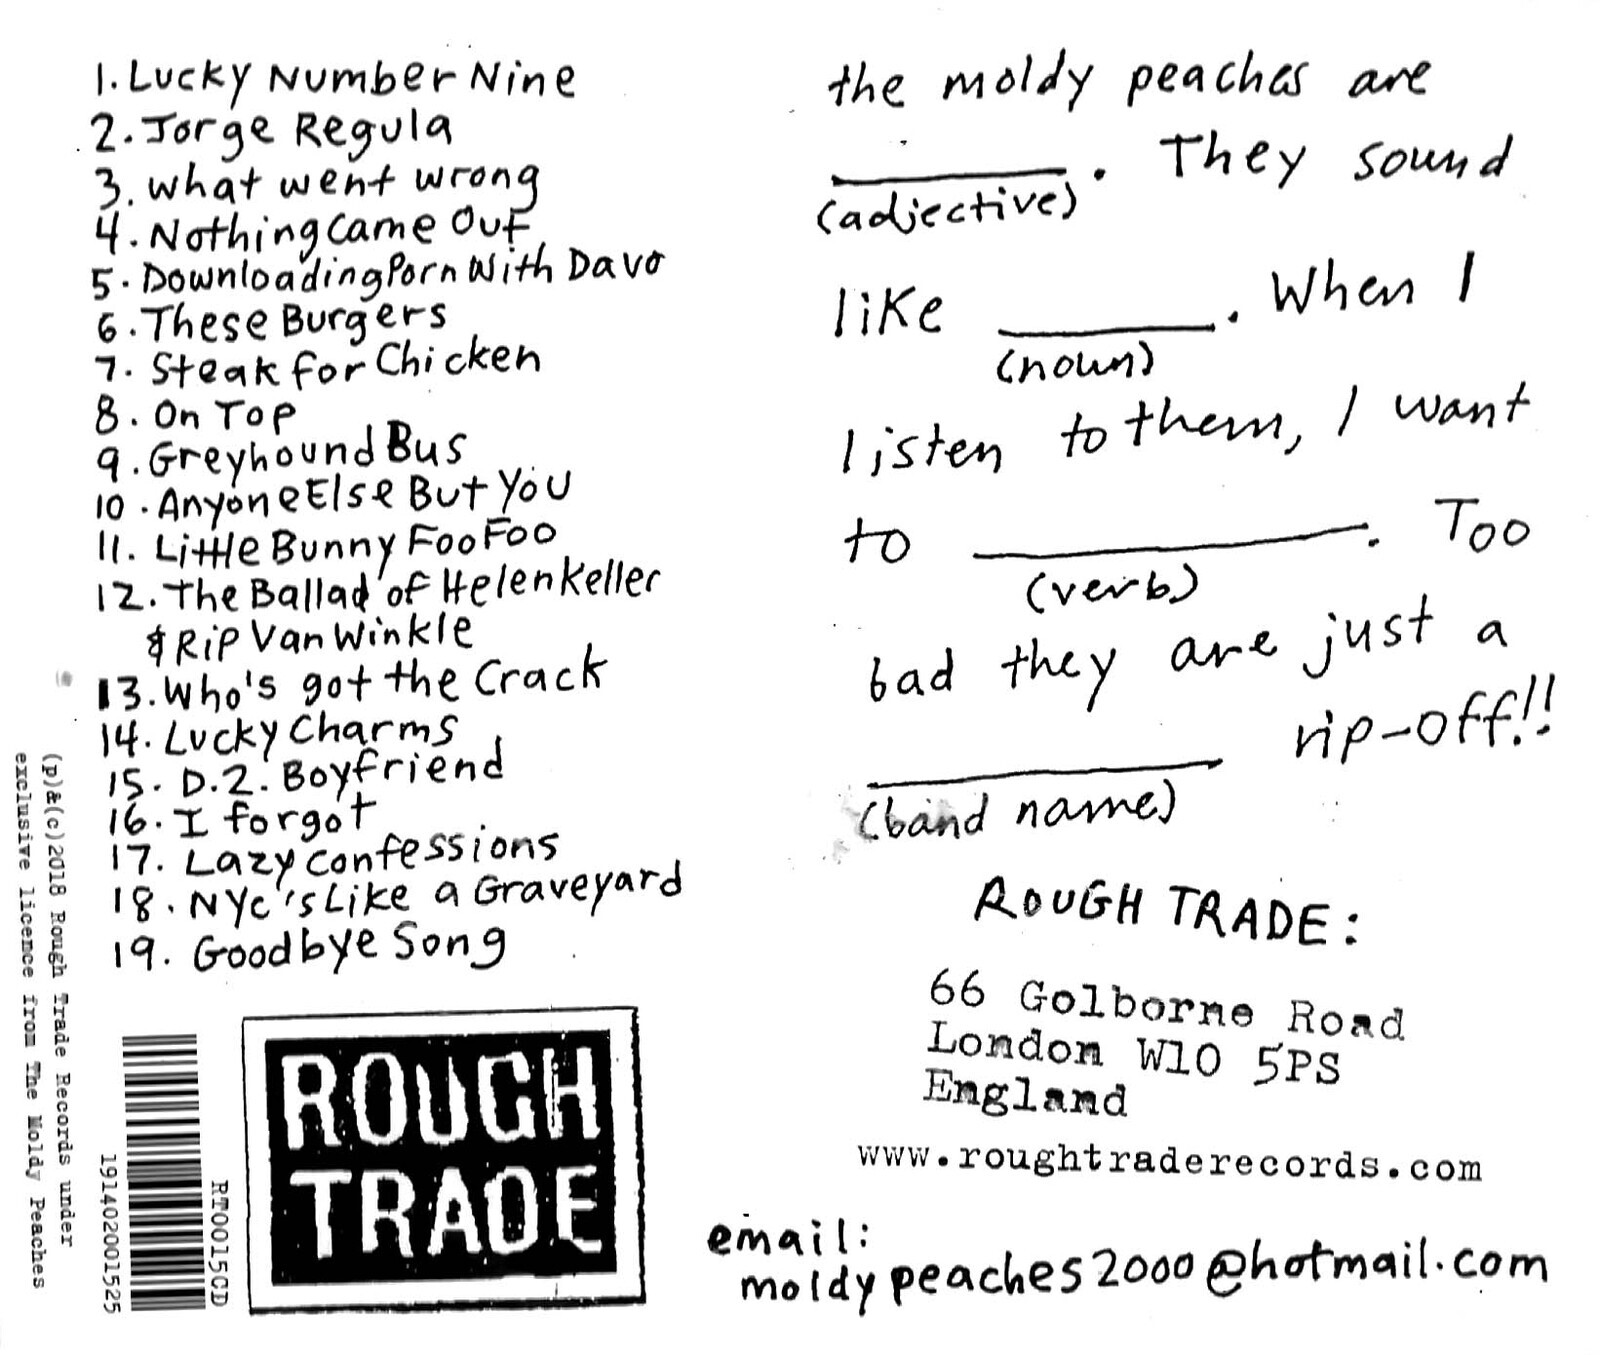 1. Lucky Number Nine
2. Jorge Regula
3. what went wrong
4. Nothing Came Out
5. Downloading Porn With Davo
6. These Burgers
7. Steak for Chicken
8. On Top
9. Greyhound Bus
10. Anyone Else But You
11. Little Bunny Foo Foo
12. The Ballad of Helen Keller
& Rip Van Winkle
13. Who's got the Crack
14. Lucky Charms
15. D.2. Boyfriend
16. I forgot
17. Lazy Confessions
18. NYC's Like a Graveyard
19. Goodbye Song
(p)&(c)2018 Rough Trade Records under
exclusive licence from The Moldy Peaches
191402001525
RT0015CD
ROUGH
TRADE
the moldy peaches are
__________. They sound
(adjective)
like __________. When I
(noun)
listen to them, I want
to __________. Too
(verb)
bad they are just a
__________ rip-off!!
(band name)
ROUGH TRADE:
66 Golborne Road
London W10 5PS
England
www.roughtraderecords.com
email:
moldypeaches2000@hotmail.com